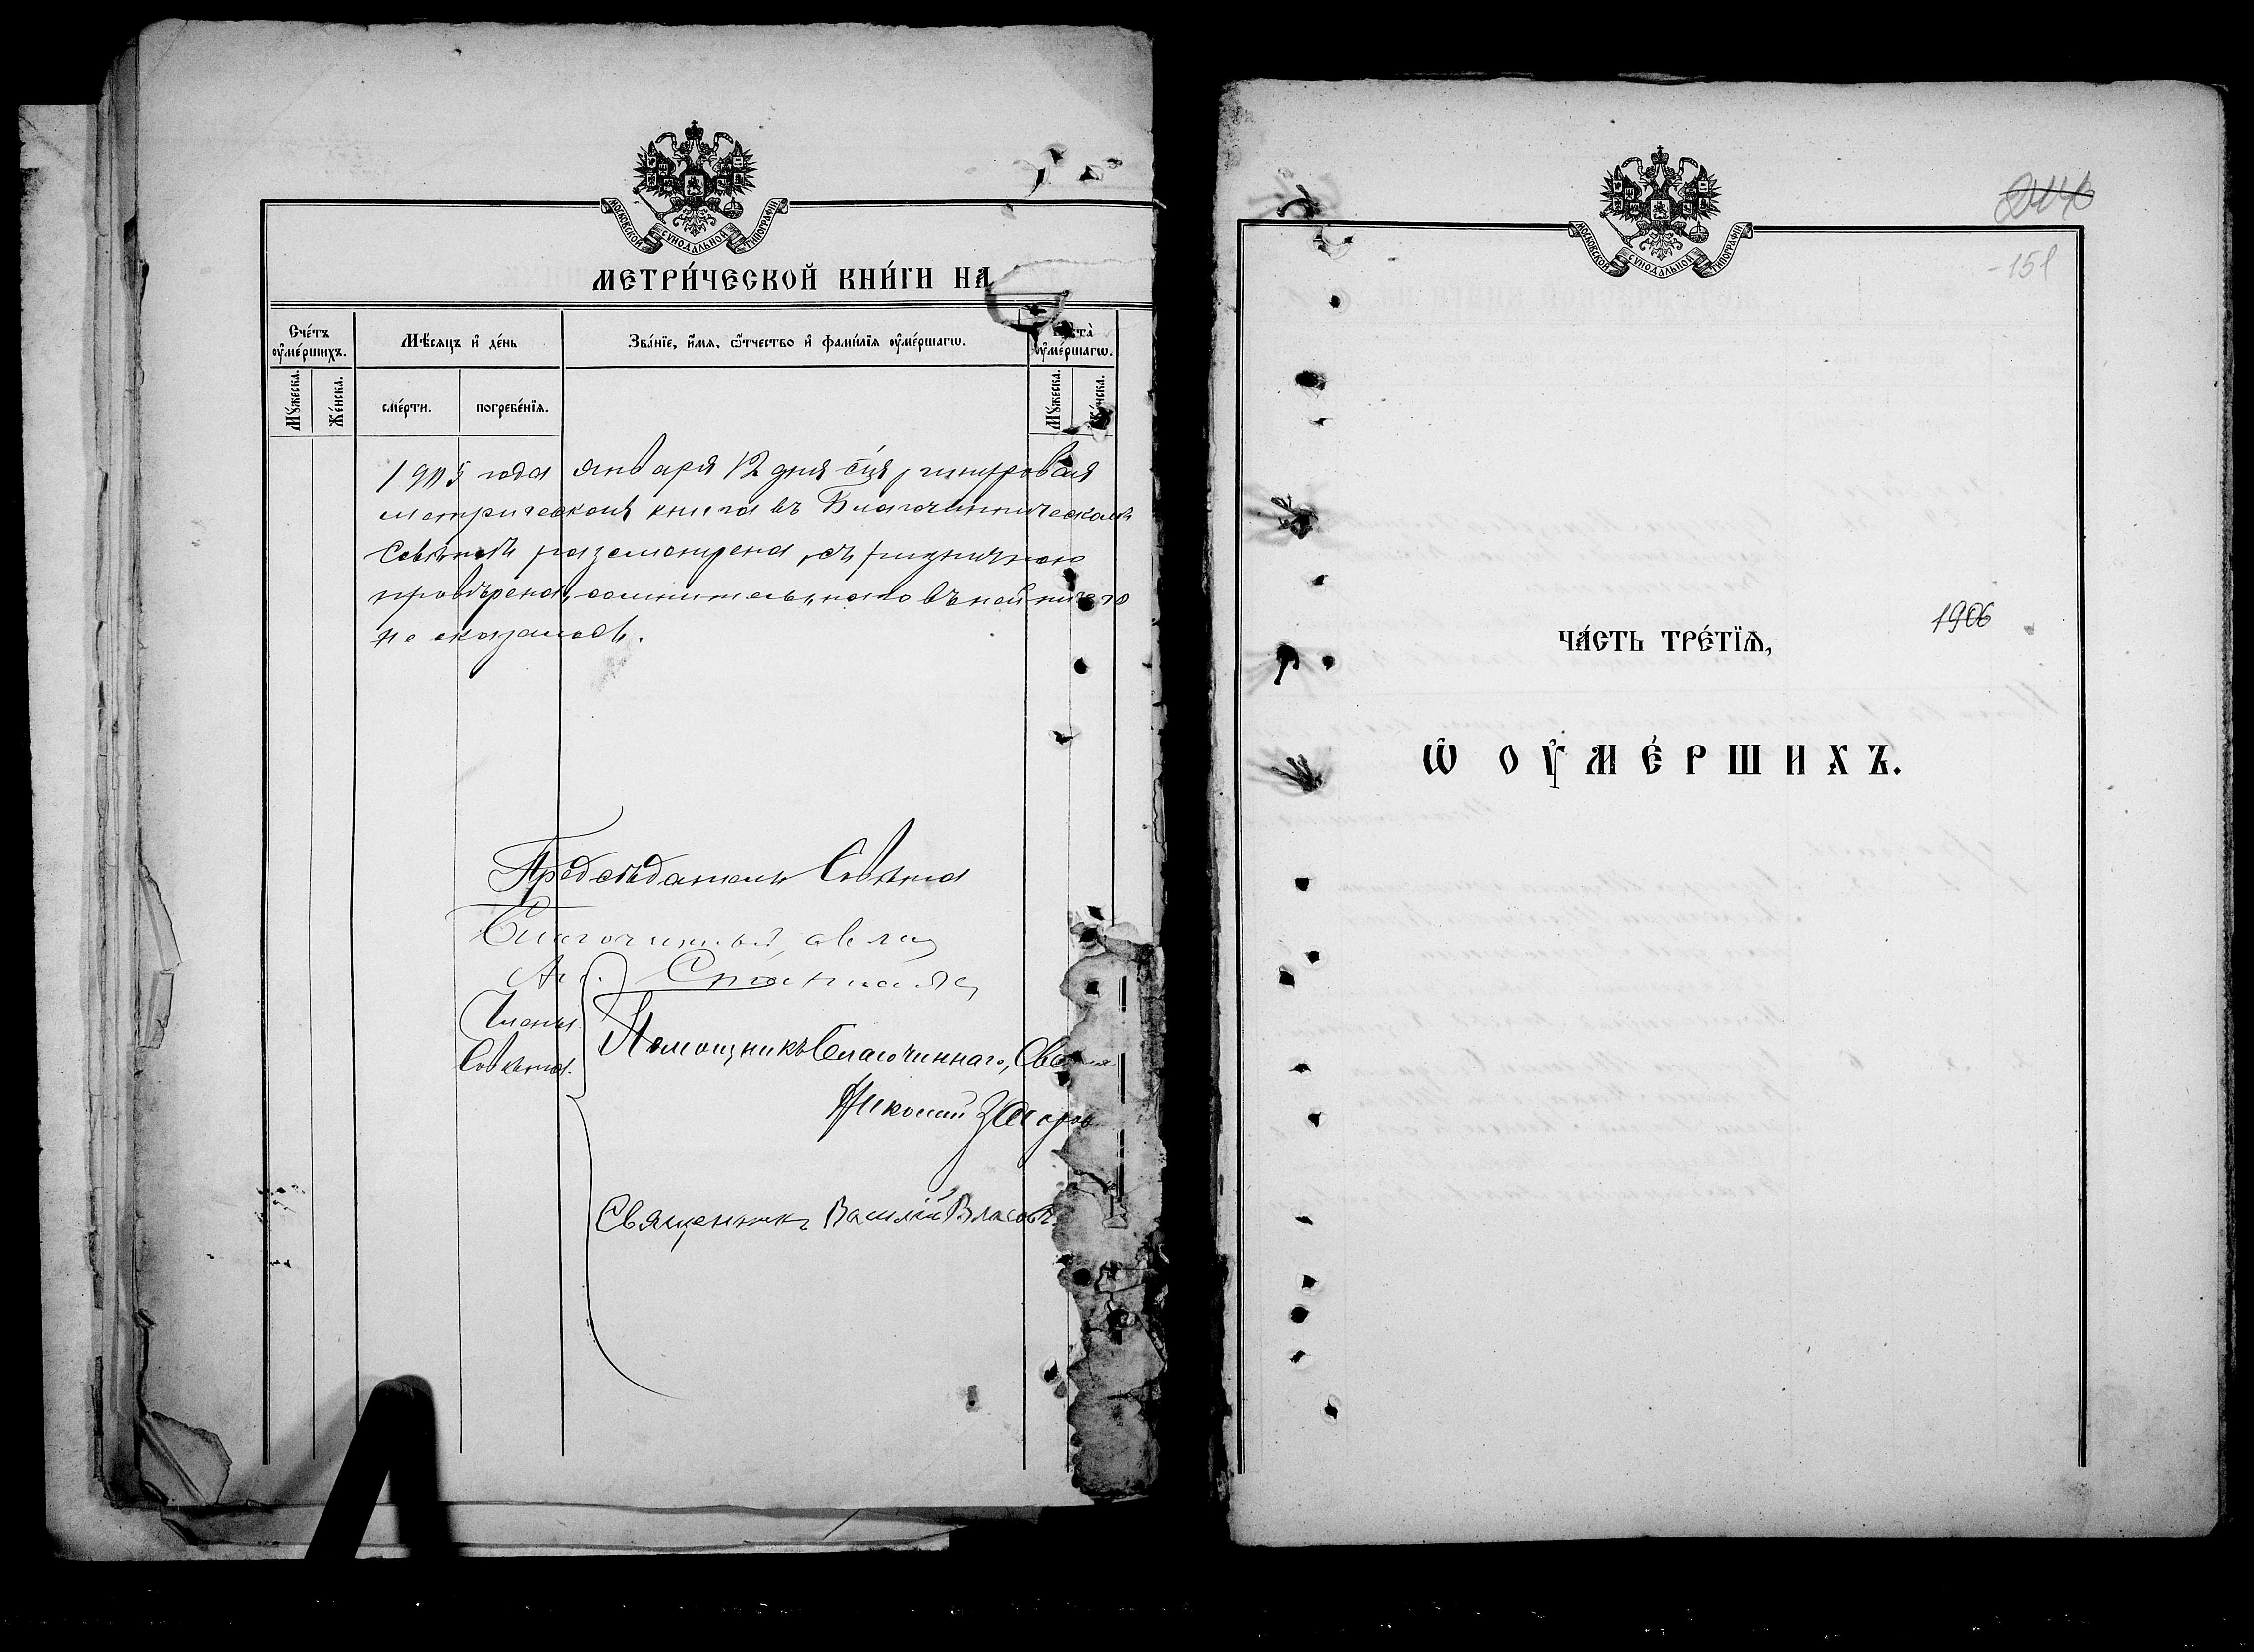 МОСКОВСКОЙ СѴНОДАЛЬНОЙ ТИПОГРАФІИ
МЕТРИ́ЧЕСКОЙ КНИ́ГИ НА
Сче́тъ оу҆ме́ршихъ.
Мѣ́сяцъ и҆ де́нь
Зва́нїе, и҆́мя, ѻ҆́тчество и҆ фами́лїя оу҆ме́ршагѡ.
оу҆ме́ршагѡ.
Мꙋ́жеска.
Же́нска.
сме́рти.
погребе́нїя.
Мꙋ́жеска.
1905 года января 12 дня сія
метрическая книга въ Благочинническомъ
Совѣтѣ разсмотрена, съ
провѣрена, сомнительнаго въ ней ничего
не оказалось.
Предсѣдатель Совѣта
Благочинный, свящ
Члены
Совѣта.
Помощникъ Благочиннаго,
Николай
Священникъ Василій Власовъ
МОСКОВСКОЙ СѴНОДАЛЬНОЙ ТИПОГРАФІИ
151
1906
ЧА́СТЬ ТРЕ́ТЇѦ,
Ѡ҆ ОУ҆МЕ́РШИХЪ.